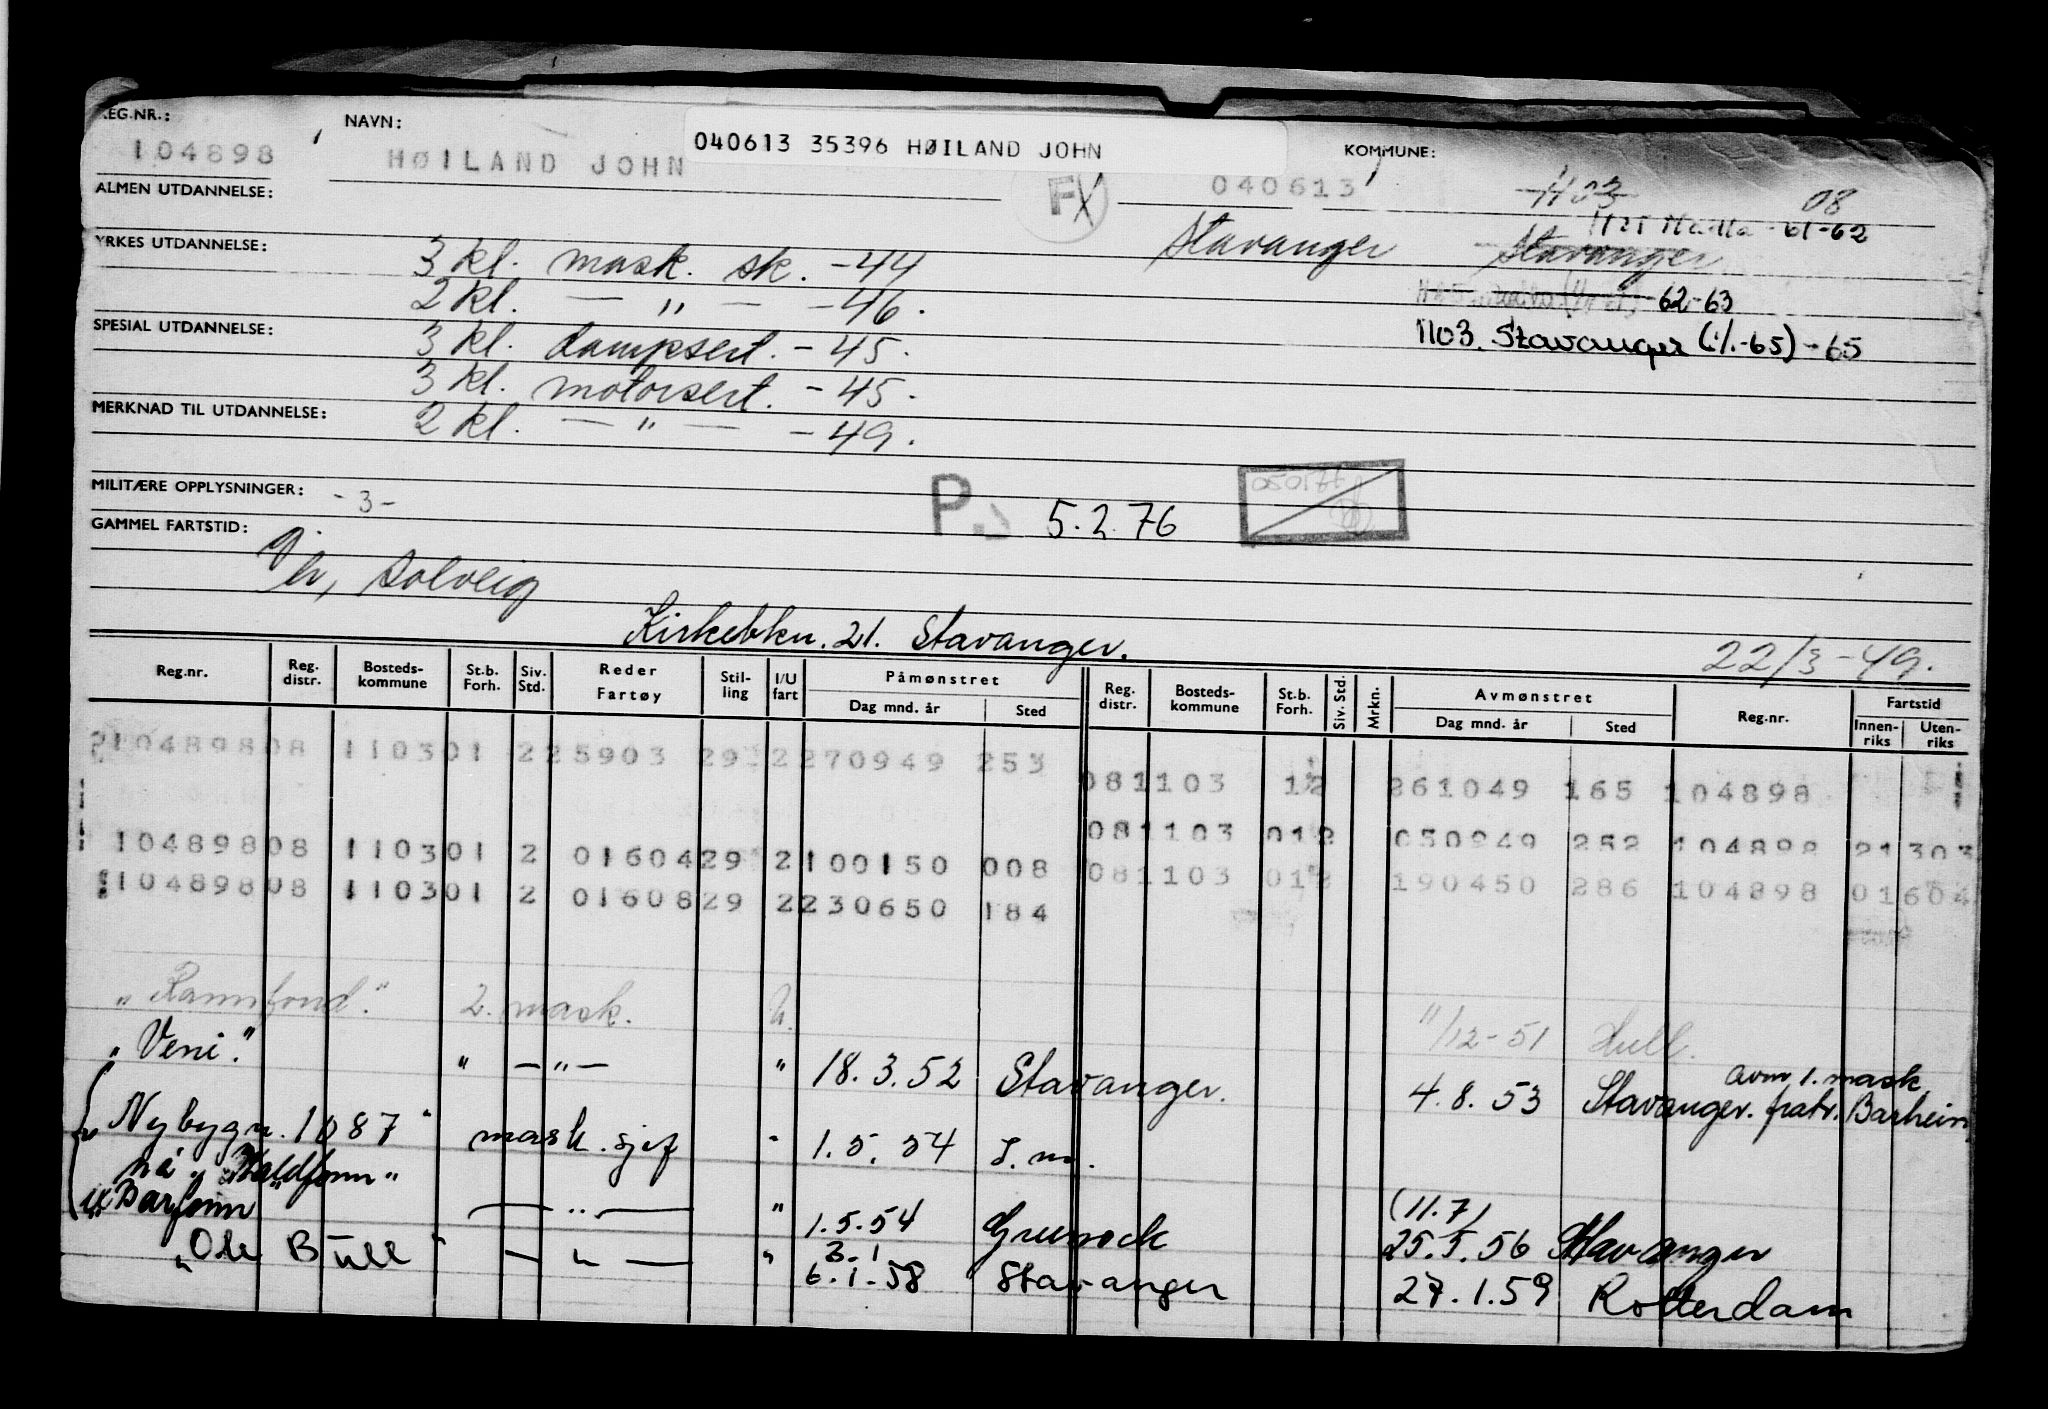 REG.NR.:
NAVN:
KOMMUNE:
040613 35396 HØILAND JOHN
104898
HØILAND JOHN
F
040613
1103
08
ALMEN UTDANNELSE:
Madla -61-62
Stavanger
Stavanger
YRKES UTDANNELSE:
3 kl. mask. sk. -44
2 kl. — " — -46.
62-63
SPESIAL UTDANNELSE:
3 kl. dampsert. -45.
1103. Stavanger (1/1.-65) -65
3 kl. motorsert. -45.
MERKNAD TIL UTDANNELSE:
2 kl. — " — -49.
MILITÆRE OPPLYSNINGER:
-3-
P.
5.2.76
771050
GAMMEL FARTSTID:
Solveig
Kirkebkn. 21. Stavanger.
22/3-49.
Reg.nr. Reg. distr. Bosteds-kommune St.b. Forh. Siv. Std. Reder Fartøy Stil-ling I/U fart Påmønstret Dag mnd. år Sted Reg. distr. Bosteds-kommune St.b. Forh. Siv. Std. Mrkn. Avmønstret Dag mnd. år Sted Reg.nr. Fartstid Innen-riks Uten-riks
10489808 110301 225903 29 2270949 253
081103 12 261049 165 104898
081103 012 050949 252 104898 21303
10489808 110301 2 0160429 2100150 008
081103 012 190450 286 104898 01604
10489808 110301 2 0160829 2230650 184
"Ramfond". 2. mask. U. 11/12-51 Hull.
"Veni". " — " — " 18.3.52 Stavanger. 4.8.53 Stavanger. fratr.
avm, 1. mask
Barheim
Nybygn. 1087" mask.sjef " 1.5.54 S.m.
nå
ex Barfonn" — " — " 1.5.54 Greenock (11.7) 25.5.56 Stavanger
"Ole Bull" — " — " 3.1
6.1-58 Stavanger 27.1.59 Rotterdam